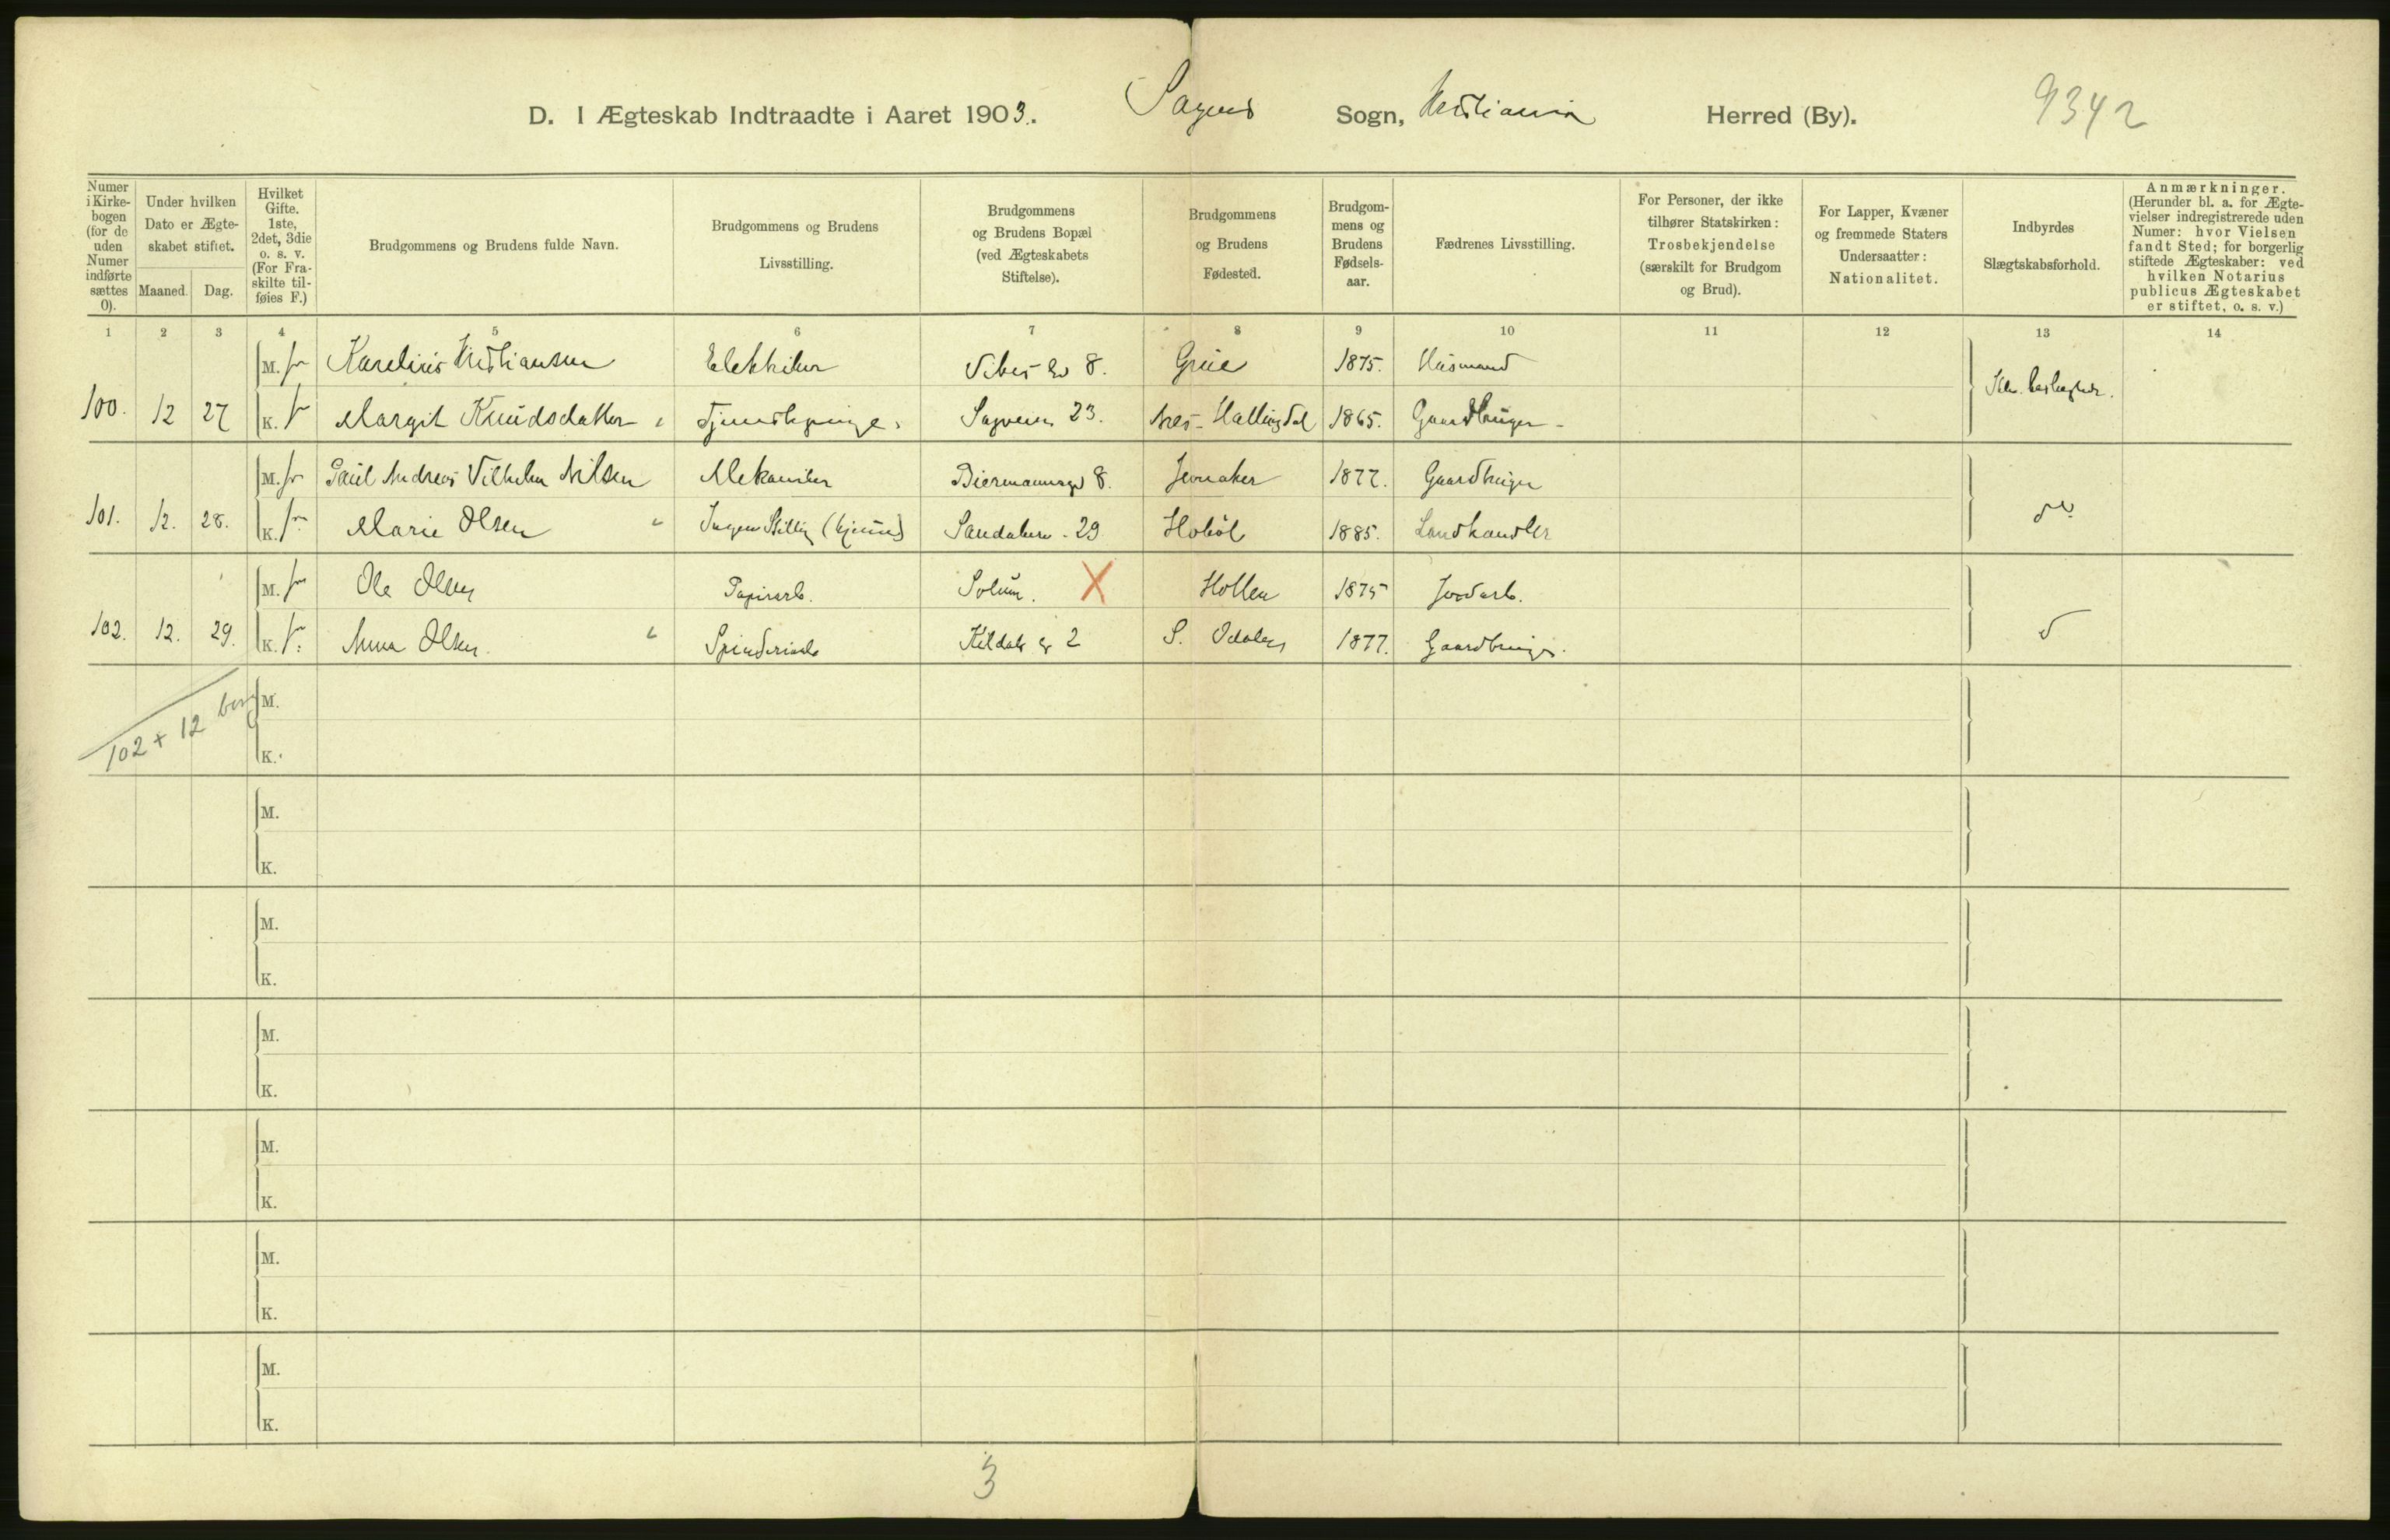 D. I Ægteskab Indtraadte i Aaret 1903. Sagens Sogn, Kristiania Herred (By). 9342
Numer i Kirkebogen (for de uden Numer indførte sættes 0).
Under hvilken Dato er Ægteskabet stiftet.
Maaned. Dag.
Hvilket Gifte. 1ste, 2det, 3die o. s. v. (For Fraskilte tilføies F.)
Brudgommens og Brudens fulde Navn.
Brudgommens og Brudens Livsstilling.
Brudgommens og Brudens Bopæl (ved Ægteskabets Stiftelse).
Brudgommens og Brudens Fødested.
Brudgommens og Brudens Fødselsaar.
Fædrenes Livsstilling.
For Personer, der ikke tilhører Statskirken: Trosbekjendelse (særskilt for Brudgom og Brud).
For Lapper, Kvæner og fremmede Staters Undersaatter: Nationalitet.
Indbyrdes Slægtskabsforhold.
Anmærkninger. (Herunder bl. a. for Ægtevielser indregistrerede uden Numer: hvor Vielsen fandt Sted; for borgerlig stiftede Ægteskaber: ved hvilken Notarius publicus Ægteskabet er stiftet, o. s. v.)
1 2 3 4 5 6 7 8 9 10 11 12 13 14
M. Karelius Kristiansen Elektriker Vibes g 8. Grue 1875. Husmand
100. 12 27 K. Margit Knudsdatter Tjenestepige Sagveien 23. Aal Hallingdal 1865. Gaardbruger
M. Paul Andreas Vilhelm Nilsen Mekaniker Biermannsg 8. Jevnaker 1877. Gaardbruger
101. 12. 28. K. Marie Olsen Ingen Stilling (hjemme) Sandakerv. 29 Hobøl 1885. Landhandler do
M. Ole Olsen Papirarb. Solum. X Hollen 1875 Jordarb.
102. 12. 29. K. Anna Olsen Spinderiarb Keldals g 2 S. Odalen 1877. Gaardbruger.
102 + 12 borg
M.
K.
M.
K.
M.
K.
M.
K.
M.
K.
M.
K.
M.
K.
3